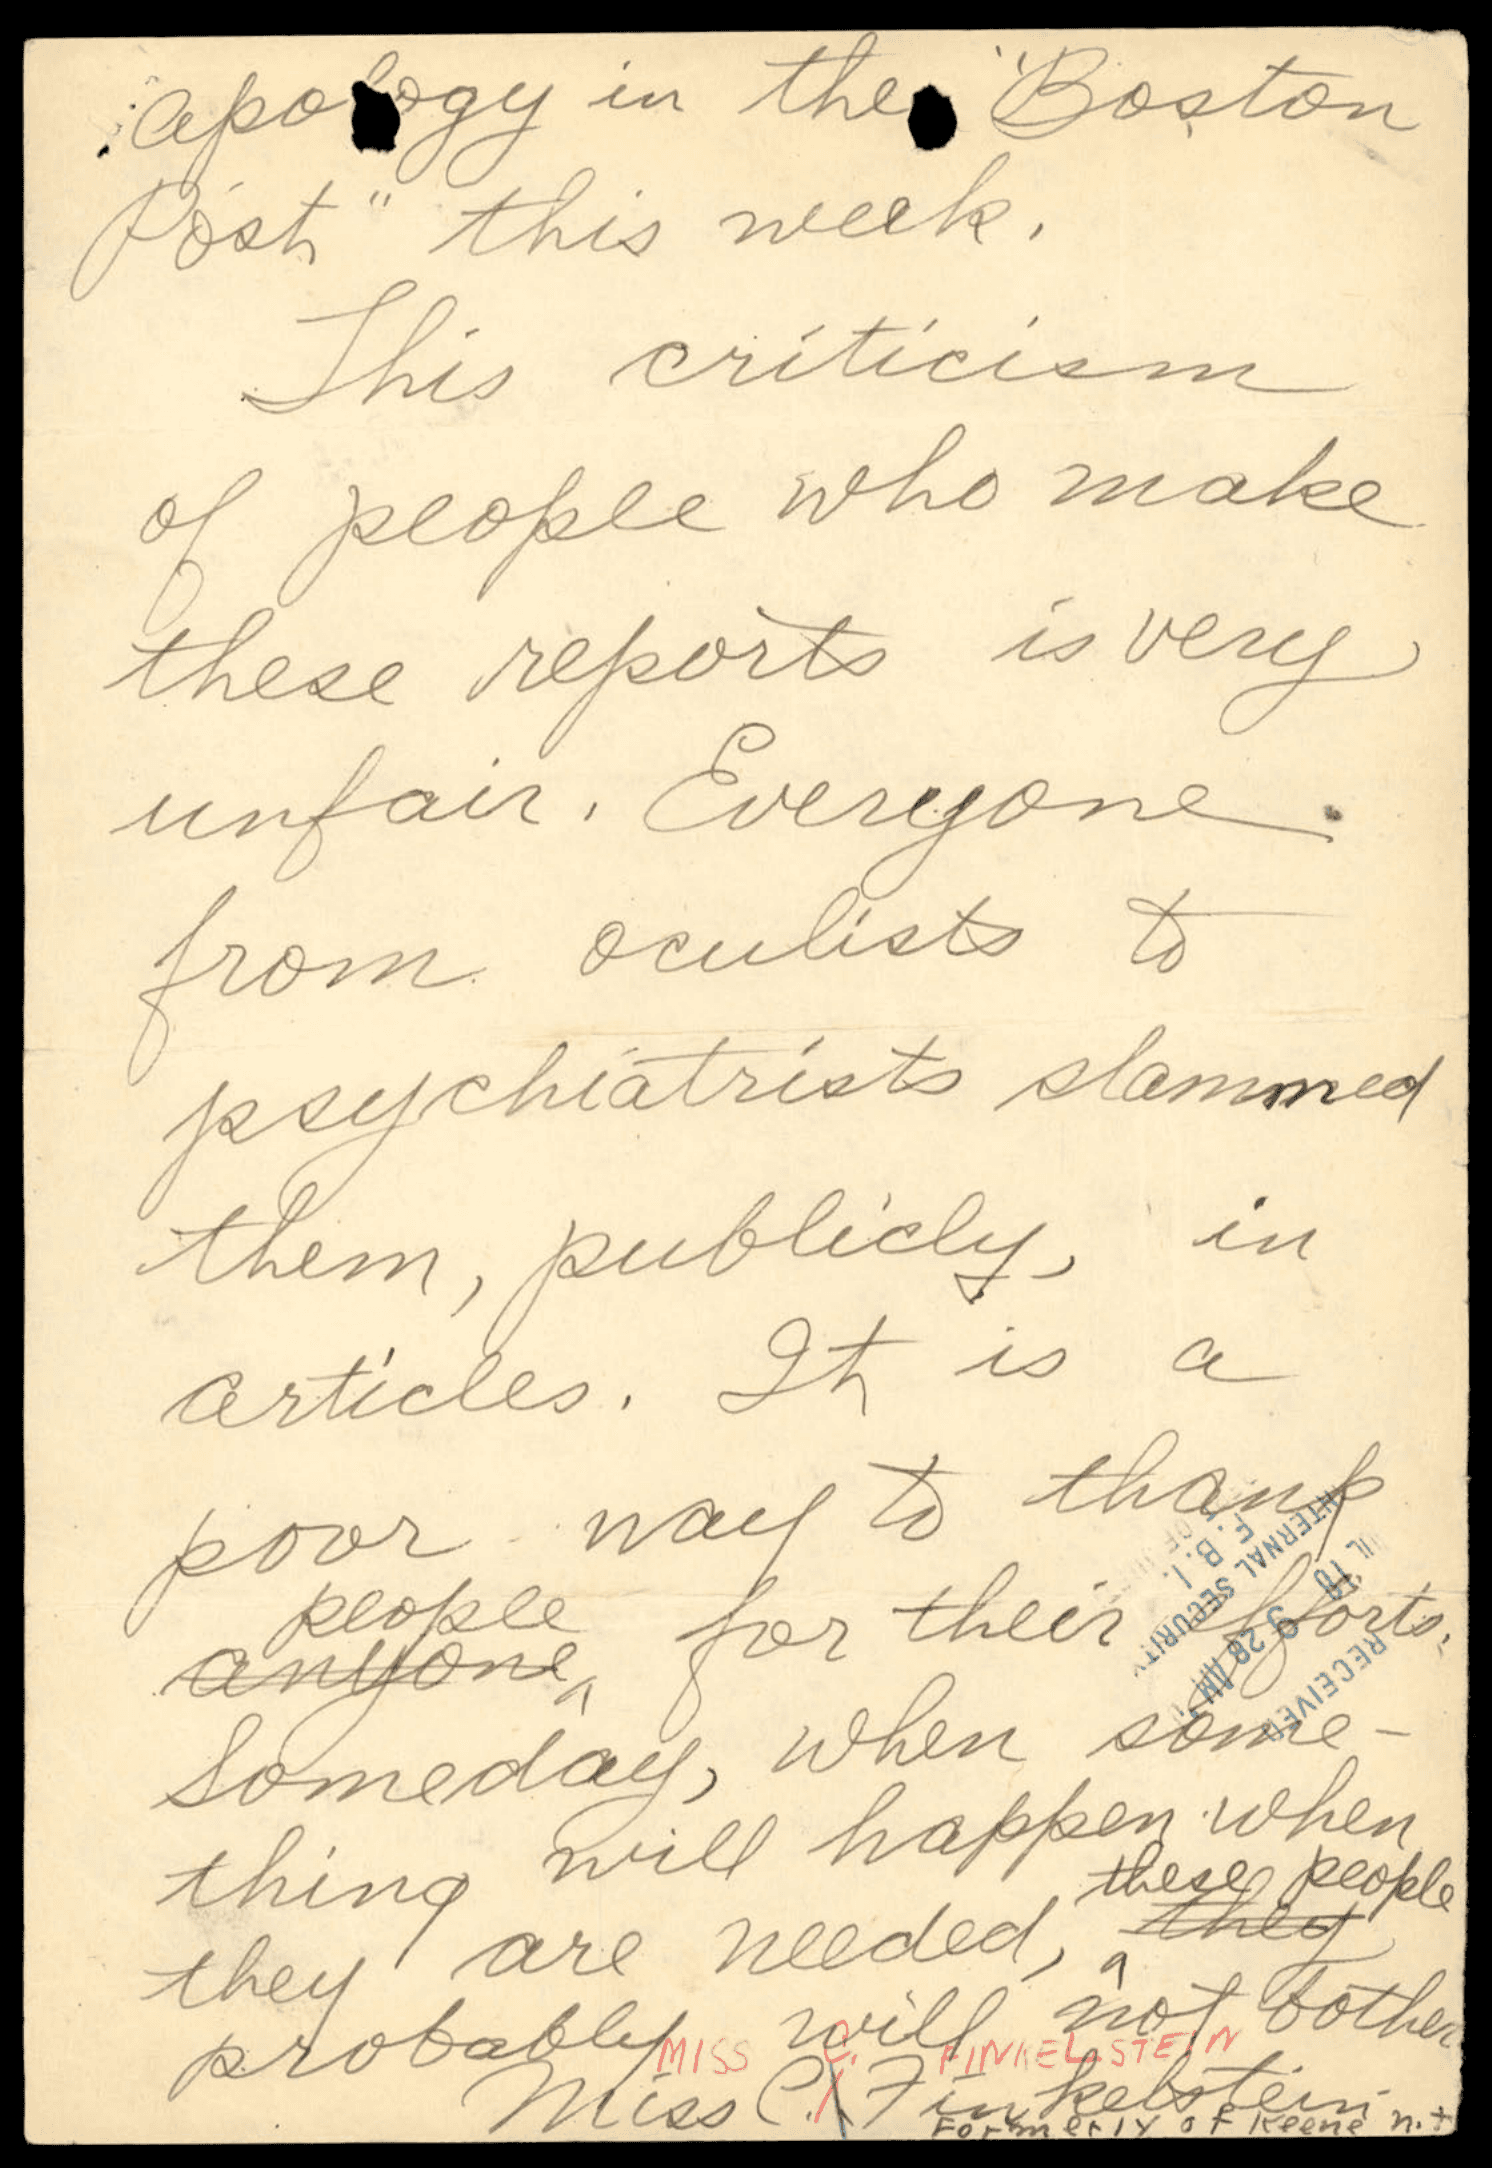 apology in the "Boston
Post" this week.
This criticism
of people who make
these reports is very
unfair. Everyone
from oculists to
psychiatrists slammed
them, publicly, in
articles. It is a
poor way to thank
people
anyone for their efforts.
Someday, when some-
thing will happen when
these people
they are needed, they
probably will not bother
MISS C. FINKELSTEIN
Miss C. Finkelstein
Formerly of Keene N.H
RECEIVED
10 9 28 AM
INTERNAL SECURITY
F. B. I.